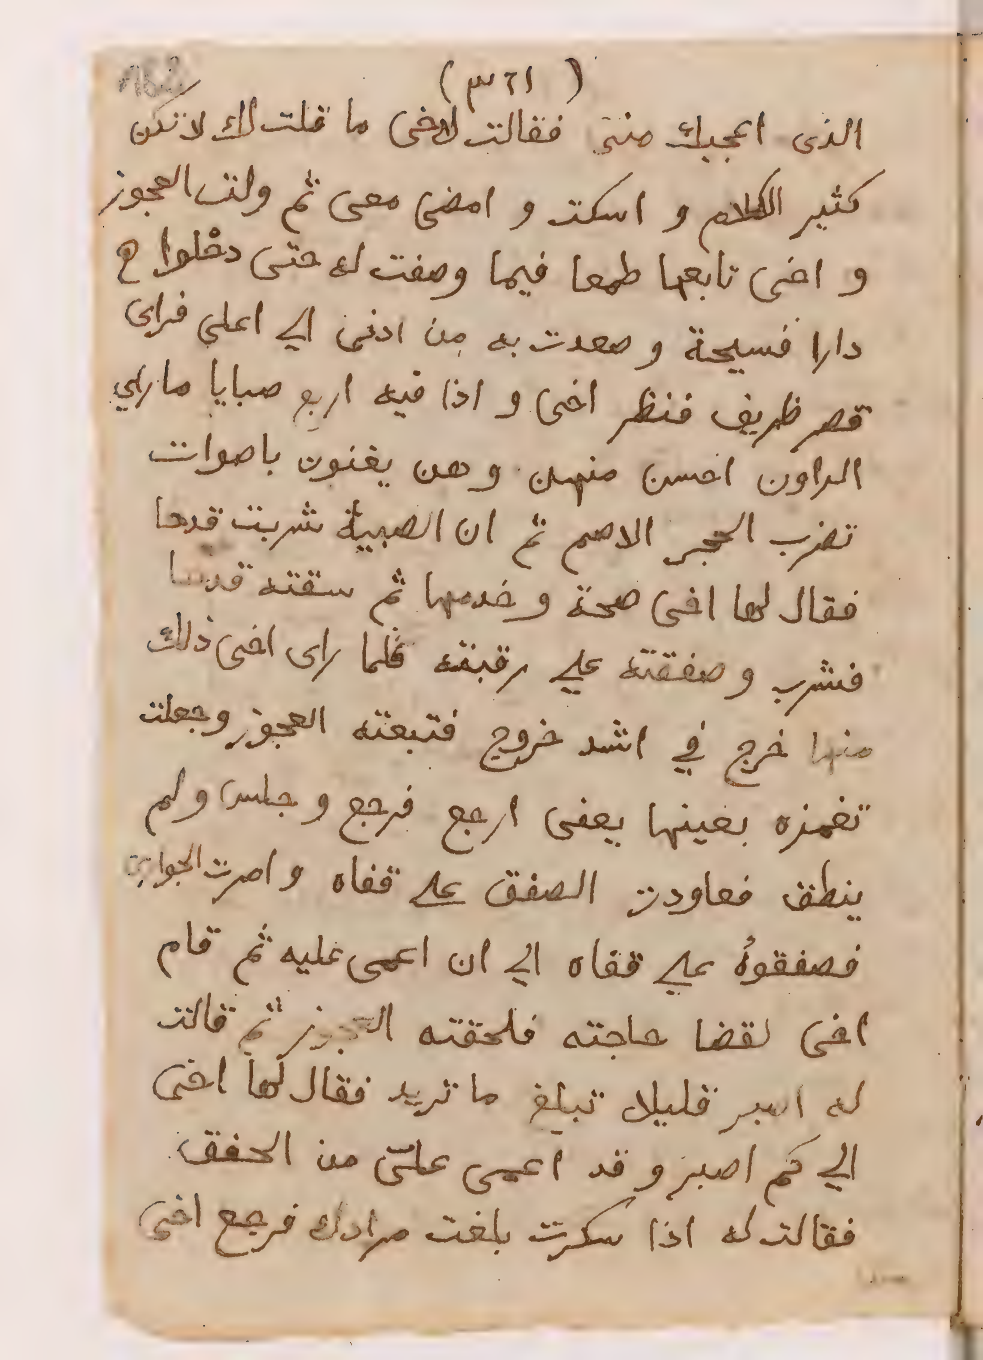 (٣٢١)
الذى اعجبك منى فقالت لاخى ما قلت لك لا تكن
كثير الكلام و اسكت و امضى معى ثم ولت العجوز
و اخى تابعها طمعا فيما وصفت له حتى دخلوا
دارا فسيحة و صعدت به من ادنى الي اعلي فراى
قصر ظريف فنظر اخى و اذا فيه اربع صبايا ما راي
الراون احسن منهن وهن يغنون باصوات
تضرب الحجر الاصم ثم ان الصبية شربت قدحا
فقال لها اخى صحة و خدمها ثم سقته قدحا
فشرب و صفقته علي رقبته فلما راى اخى ذلك
منها خرج في اشد خروج فتبعته العجوز وجعلت
تغمزه بعينها يعنى ارجع فرجع و جلس و لم
ينطق فعاودت الصفق علي قفاه و امرت الجوارى
فصفقوهُ علي قفاه الي ان اعمى عليه ثم قام
اخى لقضا حاجته فلحقته العجوز ثم قالت
له اصبر قليلا تبلغ ما تريد فقال لها اخى
الي كم اصبر و قد اعمى علىّ من الصفق
فقالت له اذا سكرت بلغت مرادك فرجع اخى